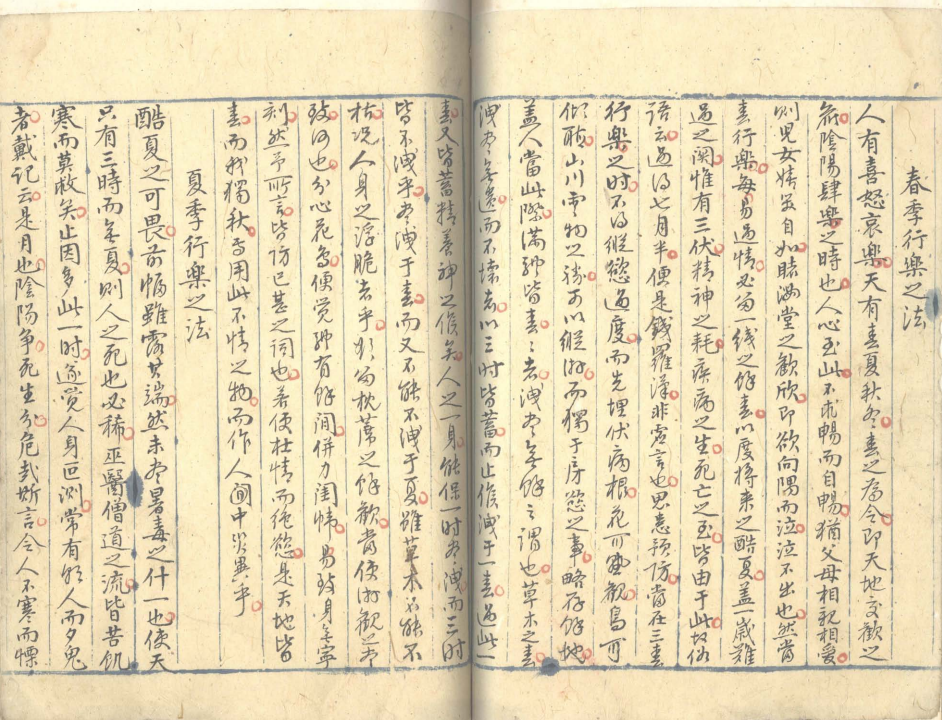 春季行樂之法
人有喜怒哀樂天有春夏秋冬春之為令即天地交歡之
候陰陽肆樂之時也人心至此不求暢而自暢猶父母相親相愛
則兒女嬉笑自如睹滿堂之歡欣即欲向隅而泣泣不出也然當
春行樂每易過情必留一线之餘春以度將来之酷夏盖一歲難
過之関惟有三伏精神之耗疾病之生死亡之至皆由于此故俗
語云過得七月半便是鉄羅漢非虚言也思患預防當在三春
行樂之时不得縱慾過度而先埋伏病根花可熟觀鳥可
倾聴山川雲物之勝可以縱游而獨于房慾之事略存餘地
盖人當此際滿軆皆春春者洩尽無餘之謂也草木之春
洩尽無遺而不壊者以三时皆蓄而止候洩于一春過此一
春又皆蓄精養神之候矣人之一身能保一时尽洩而三时
皆不洩乎尽洩于春而又不能不洩于夏雖草木不能不
枯况人身之浮脆者乎欲留枕蓆之餘歡當使游觀之尽
致何也分心花鳥便覺軆有餘閒併力閨幃易致身無寧
刻然予所言皆防已甚之詞也若使杜情而绝慾是天地皆
春而我獨秋焉用此不情之物而作人間中災異乎
夏季行樂之法
酷夏之可畏前幅雖露其端然未尽暑毒之什一也使天
只有三時而無夏則人之死也必稀巫醫僧道之流皆苦飢
寒而莫救矣止因多此一时遂覺人身叵測常有朝人而夕鬼
者戴記云是月也陰陽争死生分危哉斯言令人不寒而慄